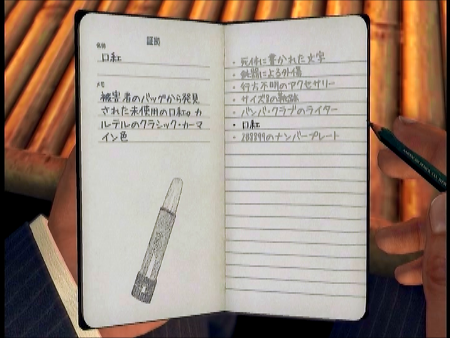 証拠
名称
口紅
メモ
被害者のバッグから発見
された未使用の口紅。カ
ルテルのクラシック・カーマ
イン色
・死体に書かれた文字
・鈍器による外傷
・行方不明のアクセサリー
・サイズ8の靴跡
・バンバ・クラブのライター
・口紅
のナンバープレート